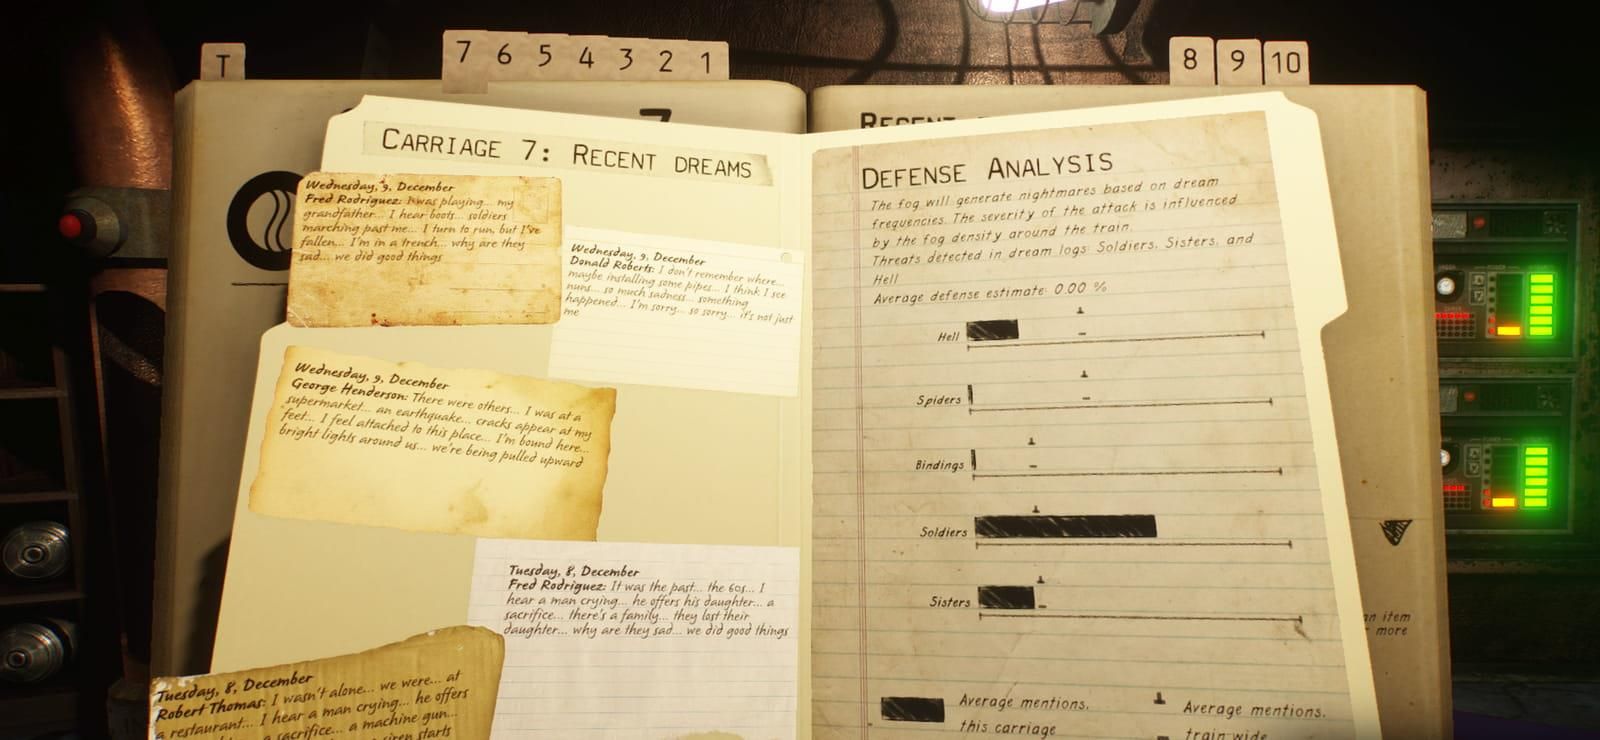 T
7 6 5 4 3 2 1
8 9 10
7
CARRIAGE 7: RECENT DREAMS
Wednesday, 9, December
Fred Rodriguez: I was playing... my
grandfather... I hear boots... soldiers
marching past me... I turn to run, but I've
fallen... I'm in a trench... why are they
sad... we did good things
Wednesday, 9, December
Donald Roberts: I don't remember where...
maybe installing some pipes... I think I see
nuns... so much sadness... something
happened... I'm sorry... so sorry... it's not just
me
Wednesday, 9, December
George Henderson: There were others... I was at a
supermarket... an earthquake... cracks appear at my
feet... I feel attached to this place... I'm bound here...
bright lights around us... we're being pulled upward
Tuesday, 8, December
Fred Rodriguez: It was the past... the 60s... I
hear a man crying... he offers his daughter... a
sacrifice... there's a family... they lost their
daughter... why are they sad... we did good things
Tuesday, 8, December
Robert Thomas: I wasn't alone... we were... at
a restaurant... I hear a man crying... he offers
a sacrifice... a machine gun...
siren starts
RECENT
DEFENSE ANALYSIS
The fog will generate nightmares based on dream
frequencies. The severity of the attack is influenced
by the fog density around the train.
Threats detected in dream logs: Soldiers, Sisters, and
Hell
Average defense estimate: 0.00 %
Hell
Spiders
Bindings
Soldiers
Sisters
Average mentions,
this carriage
Average mentions,
train wide
an item
more